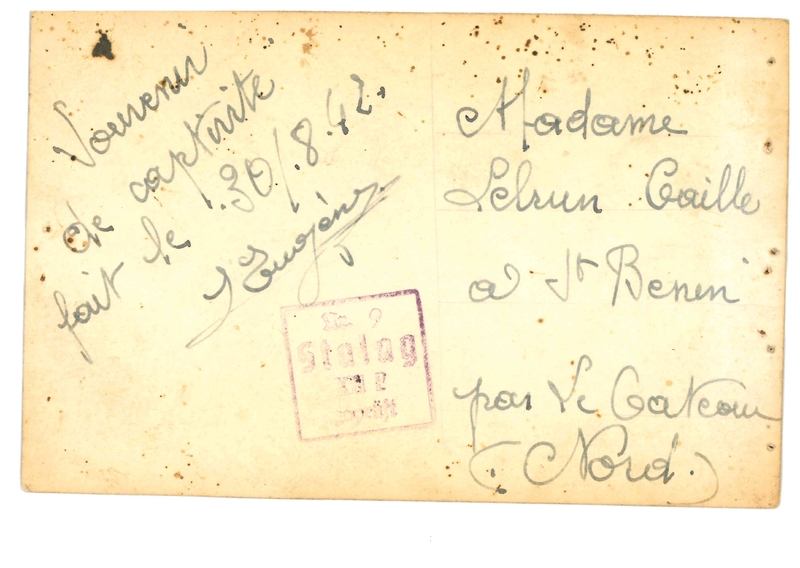 Souvenir
de captivité
fait le 30/.8.42.
Eugène
9
Stalag
geprüft
Madame
Lebrun Caille
à St Benin
par Le Cateau
(Nord.)